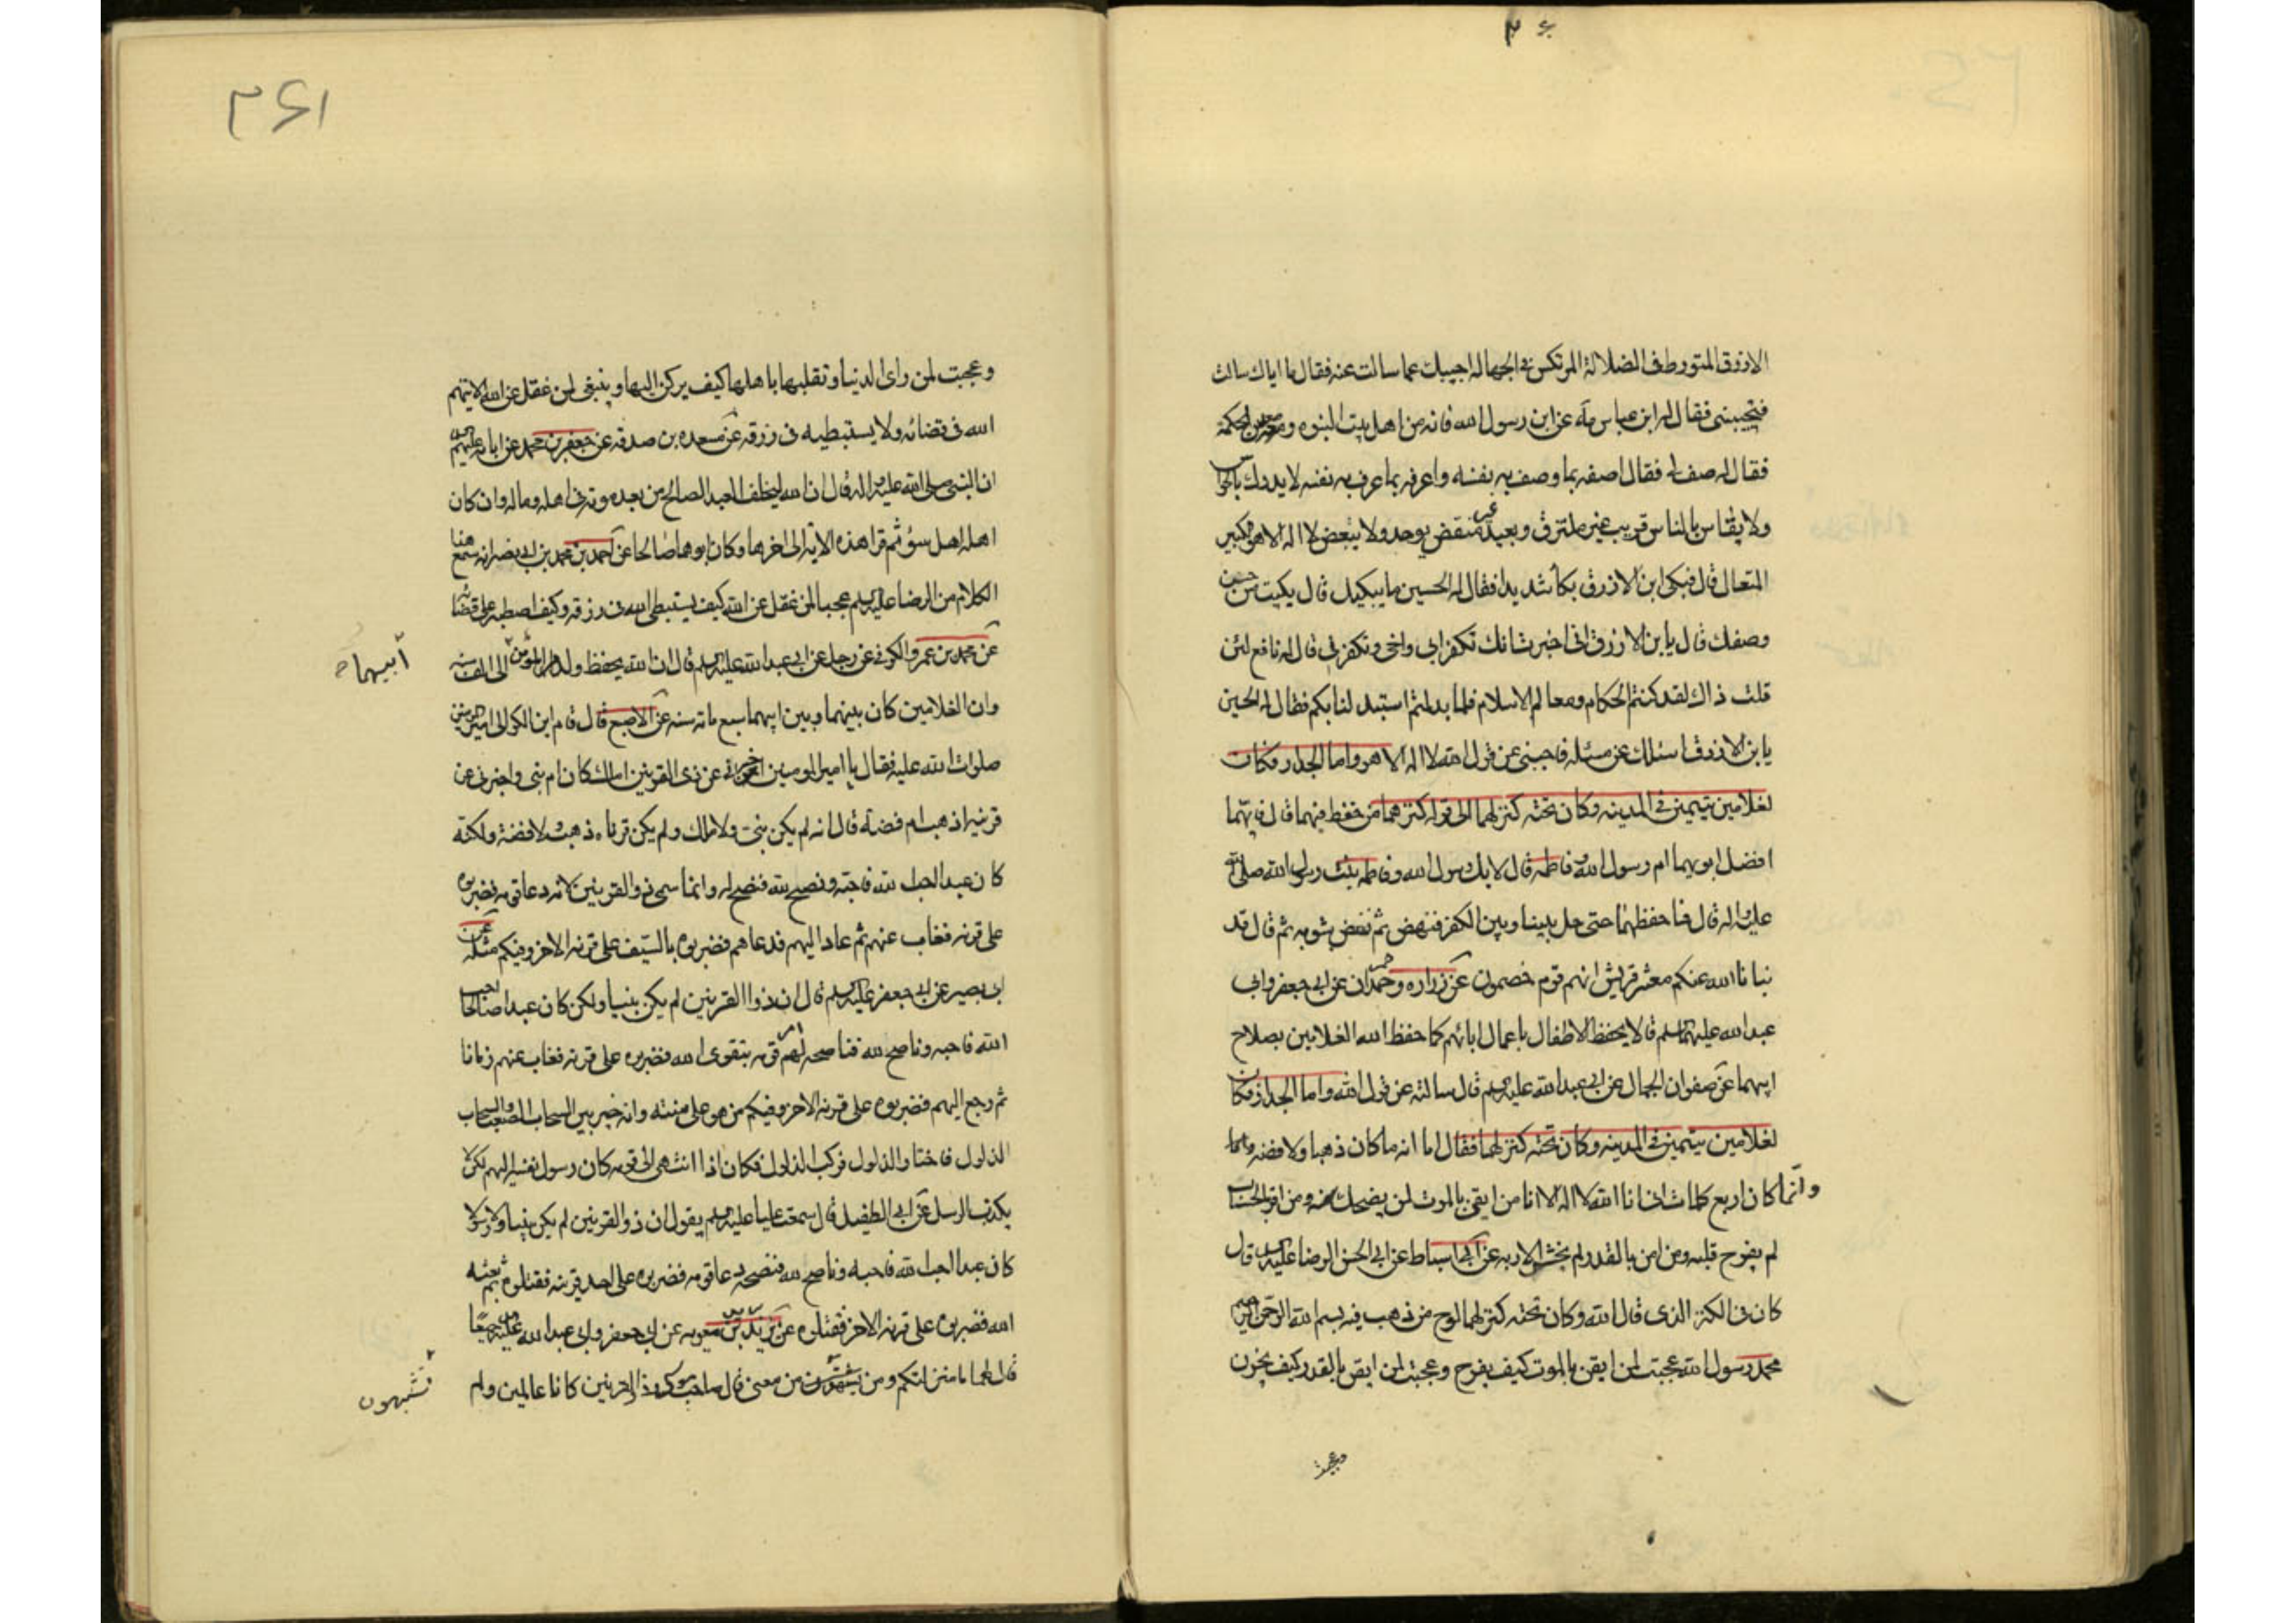 ۳۶
الازرق المتورط فى الضلالة المرتكس فى الجهاله اجيبك عما سالت عنه فقال ما اياك سالت
فتجيبنى فقال له ابن عباس مه عن ابن رسول الله فانه من اهل بيت النبوه ومعدن الحكمة
فقال له صف لى فقال اصفه بما وصف به نفسه واعرفه بما عرف به نفسه لا يدرك بالحواس
ولا يقاس بالناس قريب غير ملتزق وبعيد غير منقض يوحد ولا يتبعض لا اله الا هو الكبير
المتعال قال فبكى ابن الازرق بكاء شديدا فقال له الحسين ما يبكيك قال بكيت من حسن
وصفك قال يابن الازرق انى اخبرت انك تكفر ابى واخى وتكفرنى قال له نافع لئن
قلت ذاك لقد كنتم الحكام ومعالم الاسلام فلما بدلتم استبدلنا بكم فقال له الحسين
يابن الازرق اسئلك عن مسئله فاجبنى عن قول الله لا اله الا هو واما الجدار فكان
لغلامين يتيمين فى المدينه وكان تحته كنز لهما الى قوله كنزهما من حفظ فيهما قال فايهما
افضل ابويهما ام رسول الله وفاطمه قال لا بل رسول الله وفاطمه بنت رسول الله صلى الله
عليه واله قال فما حفظهما حتى حل بيننا وبين الكفر فنهض ثم نفض بثوبه ثم قال قد
نبانا الله عنكم معشر قريش انهم قوم خصمون عن زراره وحمران عن ابى جعفر وابى
عبد الله عليهما السلم قالا يحفظ الاطفال باعمال ابائهم كما حفظ الله الغلامين بصلاح
ابيهما عن صفوان الجمال عن ابى عبد الله عليه السلم قال سالته عن قول الله واما الجدار فكان
لغلامين يتيمين فى المدينه وكان تحته كنز لهما فقال اما انه ما كان ذهبا ولا فضه وانما
وانما كان اربع كلمات انى انا الله لا اله الا انا من ايقن بالموت لن يضحك سنه ومن اقر بالحساب
لم يفرح قلبه ومن امن بالقدر لم يخش الا ربه عن ابن اسباط عن ابى الحسن الرضا عليه السلم قال
كان فى الكنز الذى قال الله وكان تحته كنز لهما لوح من ذهب فيه بسم الله الرحمن الرحيم
محمد رسول الله عجبت لمن ايقن بالموت كيف يفرح وعجبت لمن ايقن بالقدر كيف يحزن
وعجبت
۳۶۱
وعجبت لمن راى الدنيا وتقلبها باهلها كيف يركن اليها وينبغى لمن غفل عن الله الا يتهم
الله فى قضائه ولا يستبطيه فى رزقه عن مسعده بن صدقه عن جعفر بن محمد عن ابائه عليهم السلم
ان النبى صلى الله عليه واله قال ان الله ليخلف العبد الصالح من بعده موته فى اهله وماله وان كان
اهله اهل سوء ثم قرا هذه الايه الى اخرها وكان ابوهما صالحا عن احمد بن محمد بن ابى نصر انه سمع هذا
الكلام من الرضا عليه السلم عجبا لمن غفل عن الله كيف يستبطى الله فى رزقه وكيف اصطبر على قضائه
عن محمد بن عمرو الكوفى عن رجل عن ابى عبد الله عليه السلم قال ان الله يحفظ ولد المؤمن الى الف سنه
وان الغلامين كان بينهما وبين ابيهما سبع مائه سنه عن الاصبغ قال قام ابن الكوا الى امير المؤمنين
ابيهما
صلوات الله عليه فقال يا امير المومنين اخبرنى عن ذى القرنين املك كان ام نبى واخبرنى عن
قرنيه اذهب ام فضه قال انه لم يكن نبى ولا ملك ولم يكن قرناه ذهب ولا فضة ولكنه
كان عبد احب الله فاحبه ونصح لله فنصح له وانما سمى ذو القرنين لانه دعا قومه فضربوه
على قرنه فغاب عنهم ثم عاد اليهم فدعاهم فضربوه بالسيف على قرنه الاخر وفيكم مثله عن
ابى بصير عن ابى جعفر عليه السلم قال ان ذوا القرنين لم يكن نبيا ولكن كان عبدا صالحا احب
الله فاحبه وناصح لله فناصحه امر قومه بتقوى الله فضربوه على قرنه فغاب عنهم زمانا
ثم رجع اليهم فضربوه على قرنه الاخر وفيكم من هو على سنته وانه خير بين السحاب الصعب والسحاب
الذلول فاختار الذلول فركب الذلول فكان اذا انتهى الى قوم كان رسول نفسه اليهم لكيلا
يكذب الرسل عن ابى الطفيل قال سمعت عليا عليه السلم يقول ان ذو القرنين لم يكن نبيا ولا رسولا
كان عبدا احب الله فاحبه وناصح لله فنصحه دعا قومه فضربوه على احد قرنيه فقتلوه ثم بعثه
الله فضربوه على قرنه الاخر فقتلوه عن بريد بن معويه عن ابى جعفر وابى عبد الله عليهما السلم جميعا
قال لهما ما منزلتكم ومن تشبهون ممن مضى قال صاحب موسى وذا القرنين كانا عالمين ولم
تشبهون